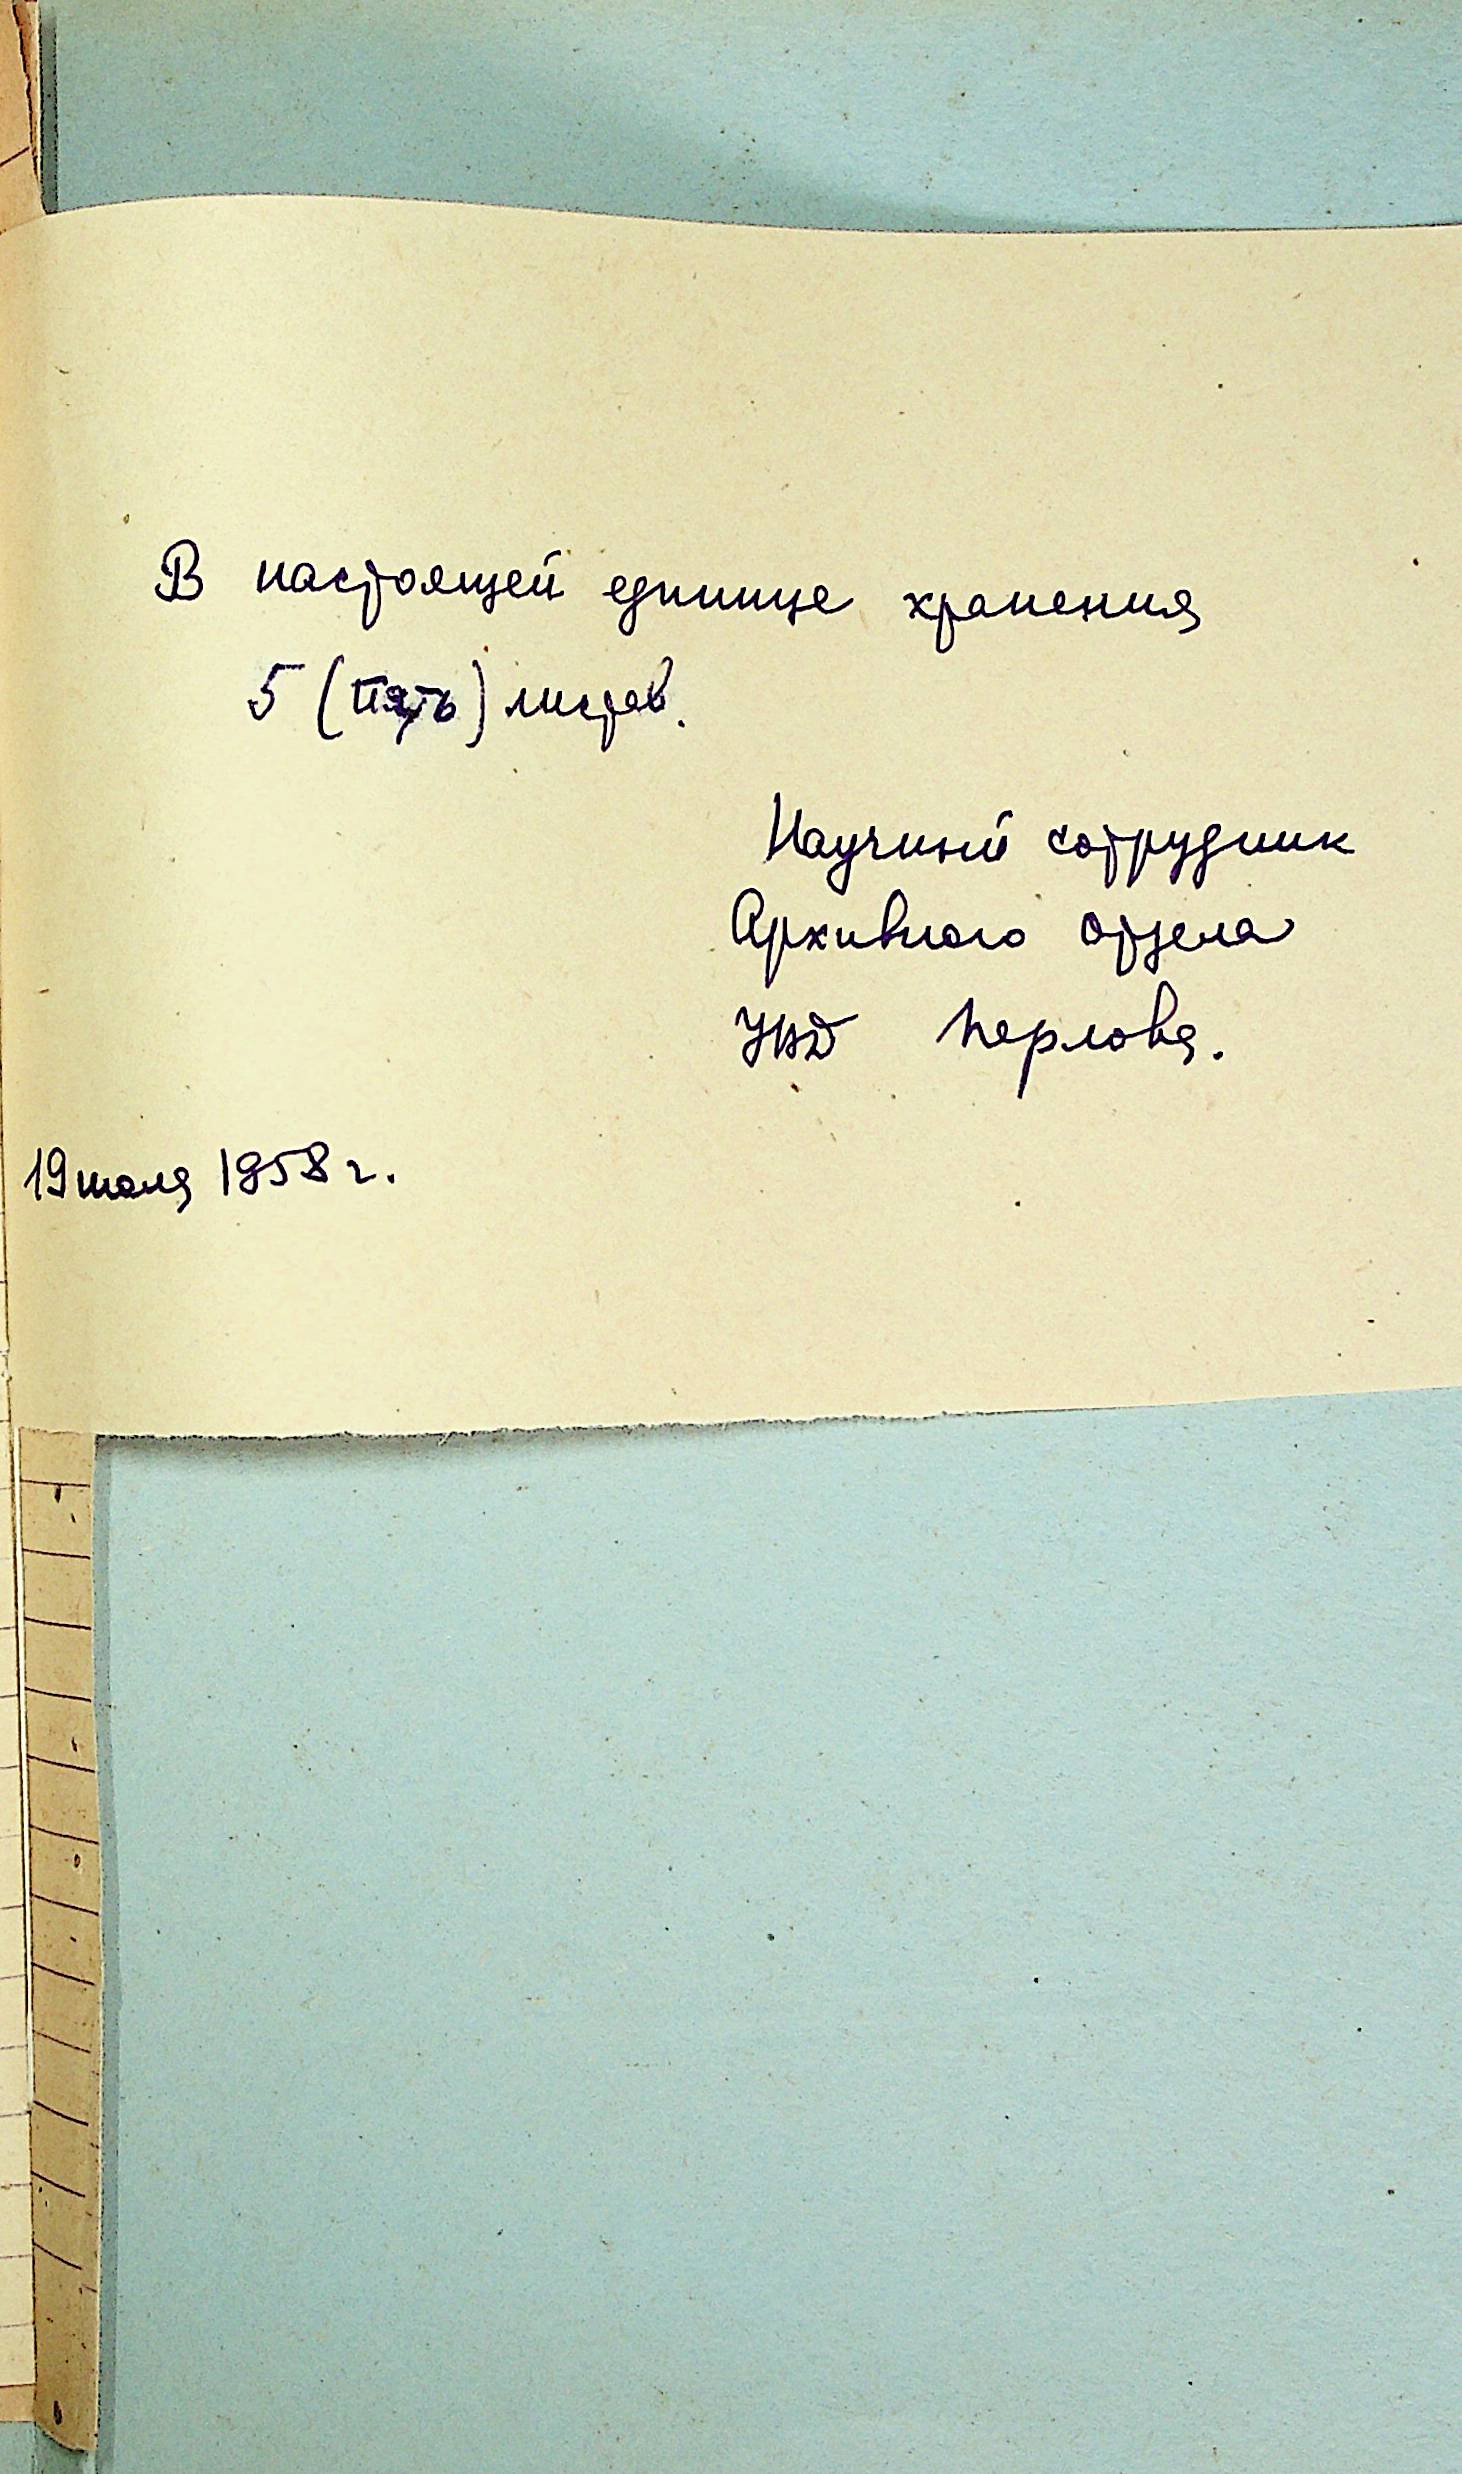 В настоящей единице хранения
5 (пять) листов.
Научный сотрудник
Архивного отдела
УВД Перлова.
19 июля 1958 г.